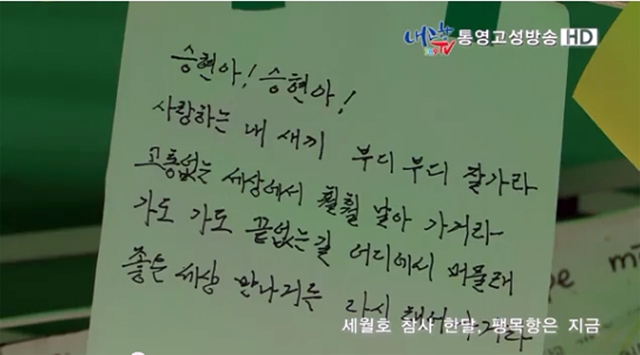 통영고성방송 HD
승현아! 승현아!
사랑하는 내 새끼 부디 부디 잘가라
고통없는 세상에서 훨훨 날아 가거라
가도 가도 끝없는길 어디에서 머물래
좋은 세상 만나거든 다시
세월호 참사 한달, 팽목항은 지금